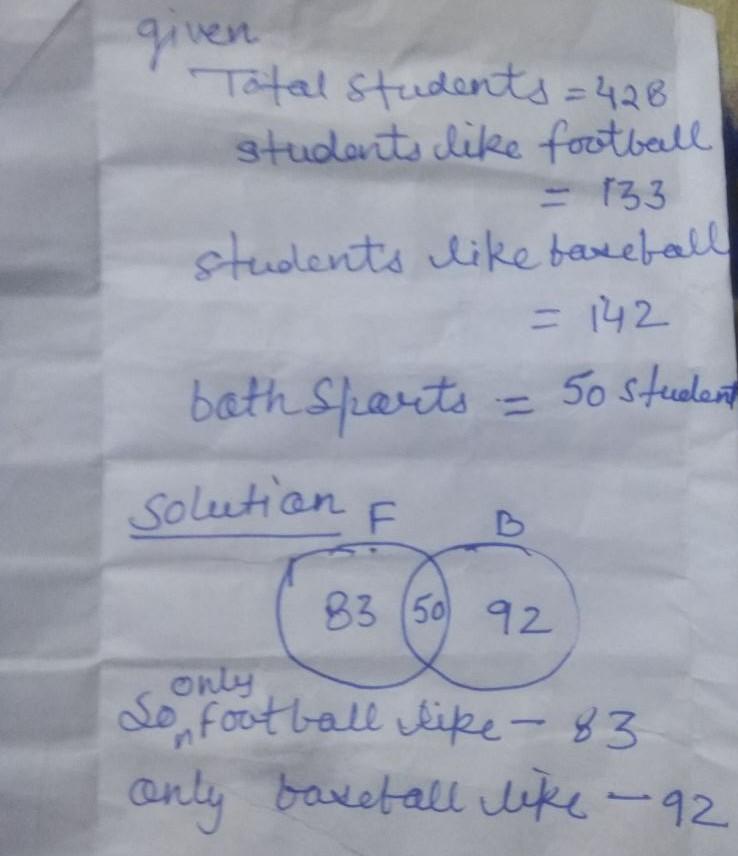 given
Total students = 428
students like football
= 133
students like baseball
= 142
both Sports = 50 student
Solution F B
83 50 92
only
So, football like - 83
only baseball like - 92